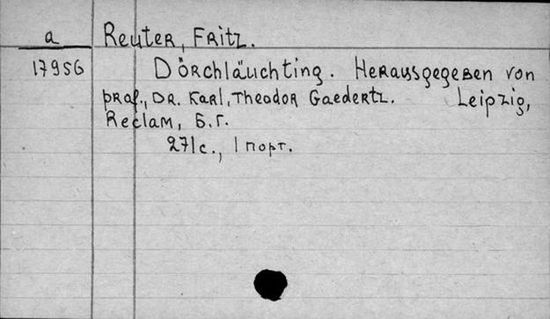 a Reuter, Fritz.
17956 Dörchläuchting. Herausgegeben von
prof., Dr. Karl, Theodor Gaedertz. Leipzig,
Reclam, Б.г.
271с., 1 порт.